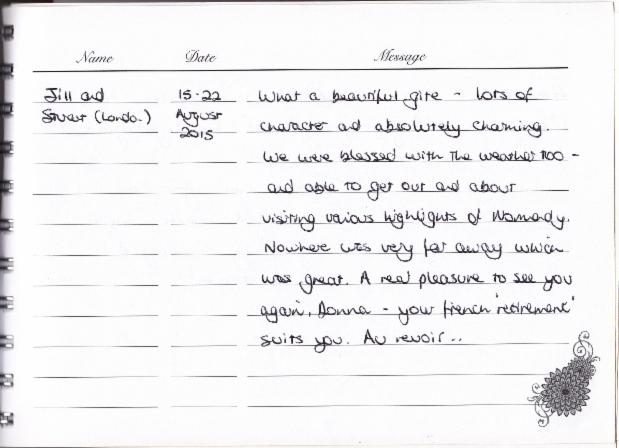 Name Date Message
Jill and 15-22 What a beautiful gite - lots of
Stuart (London) August character and absolutely charming.
2015
We were blessed with the weather too -
and able to get out and about
visiting various highlights of Normandy.
Nowhere was very far away which
was great. A real pleasure to see you
again, Donna - your french 'retirement'
suits you. Au revoir ..